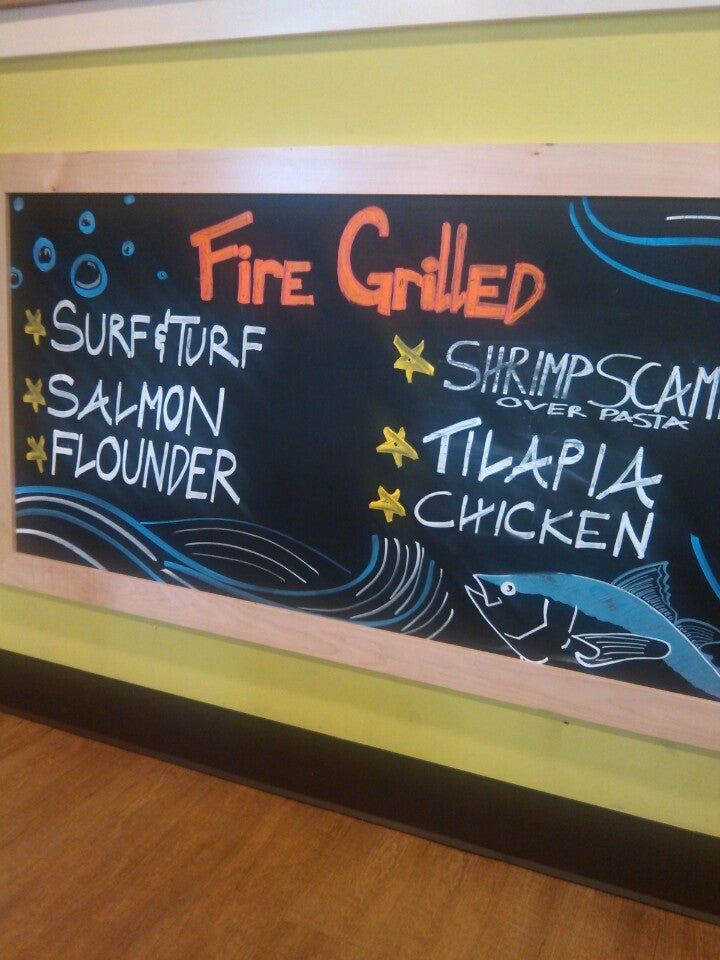 Fire Grilled
SURF & TURF
SALMON
FLOUNDER
SHRIMP SCAM
OVER PASTA
TILAPIA
CHICKEN